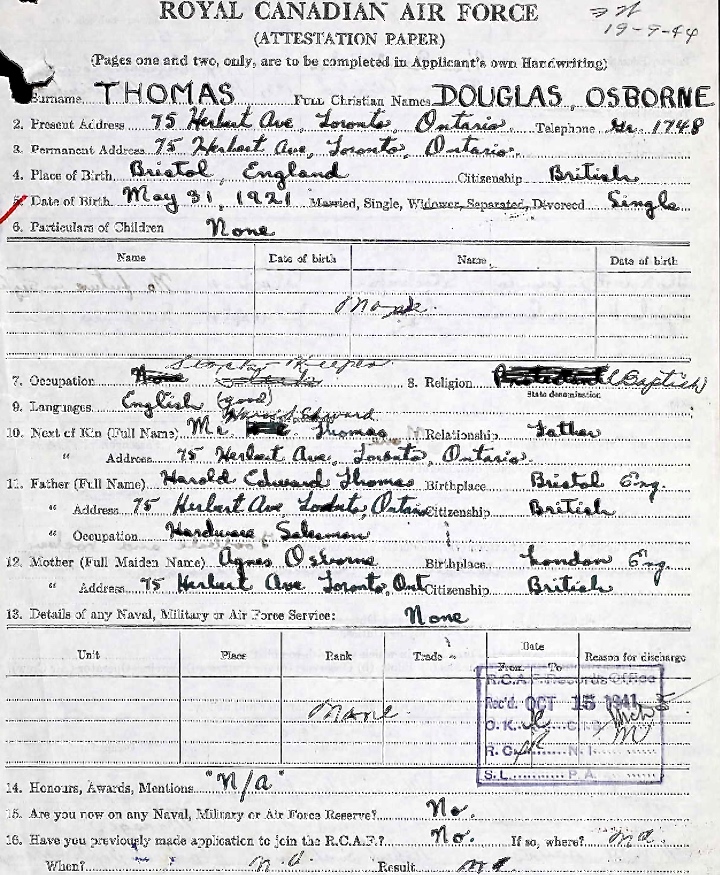 ROYAL CANADIAN AIR FORCE
19-9-44
(ATTESTATION PAPER)
(Pages one and two, only, are to be completed in Applicant's own Handwriting)
Surname THOMAS FULL Christian Names DOUGLAS OSBORNE
2. Present Address 75 Herbert Ave, Toronto, Ontario. Telephone Gr. 1748
3. Permanent Address 75 Herbert Ave, Toronto, Ontario.
4. Place of Birth Bristol, England Citizenship British
5. Date of Birth May 31, 1921 Married, Single, Widower, Separated, Divorced Single
6. Particulars of Children None
Name Date of birth Name Date of birth
None.
7. Occupation Keeper 8. Religion (Baptist)
State denomination
9. Languages English (good)
Harold Edward
10. Next of Kin (Full Name) Mr. Thomas Relationship Father
" Address 75 Herbert Ave, Toronto, Ontario.
11. Father (Full Name) Harold Edward Thomas Birthplace Bristol Eng.
" Address 75 Herbert Ave Toronto, Ontario Citizenship British
" Occupation Hardware Salesman
12. Mother (Full Maiden Name) Agnes Osborne Birthplace London Eng
" Address 75 Herbert Ave Toronto, Ont Citizenship British
13. Details of any Naval, Military or Air Force Service: None
Unit Place Rank Trade Date From To Reason for discharge
None.
R.C.A.F. Records Office
Rec'd. OCT 15 1941
O.K. C.I.S.
R.C. N.I.
S.L. P.A.
14. Honours, Awards, Mentions "N/a"
15. Are you now on any Naval, Military or Air Force Reserve? No.
16. Have you previously made application to join the R.C.A.F.? No. If so, where? n.a.
When? n.a. Result n.a.